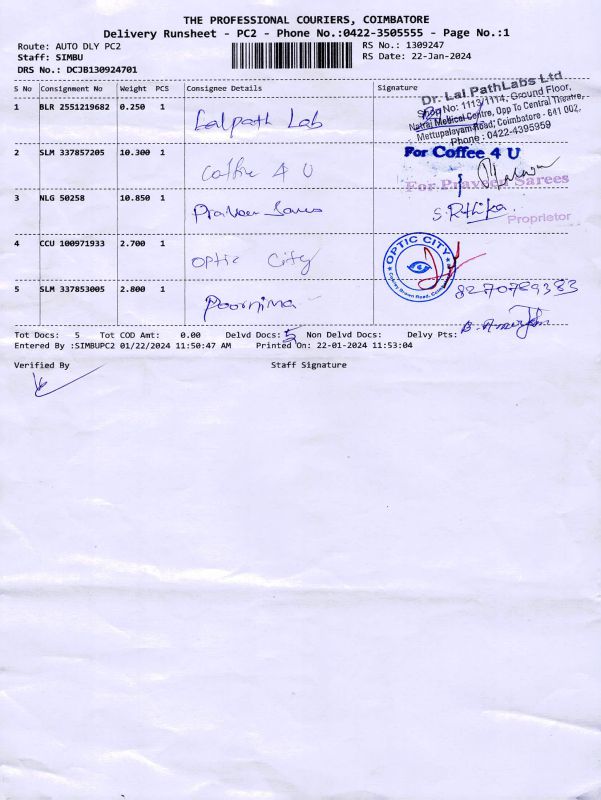 THE PROFESSIONAL COURIERS, COIMBATORE
Delivery Runsheet - PC2 - Phone No.:0422-3505555 - Page No.:1
Route: AUTO DLY PC2
RS No.: 1309247
Staff: SIMBU
RS Date: 22-Jan-2024
DRS No.: DCJB130924701
S No Consignment No Weight PCS Consignee Details Signature
1 BLR 2551219682 0.250 1 Lalpath Lab
Dr. Lal PathLabs Ltd
Shop No: 1113/1114, Ground Floor,
Natraj Medical Centre, Opp To Central Theatre,
Mettupalayam Road, Coimbatore - 641 002.
Phone : 0422-4395959
2 SLM 337857205 10.300 1 Coffee 4 U
For Coffee 4 U
3 NLG 50258 10.850 1 Praveen Sarees
For Praveen Sarees
S. Rthika
Proprietor
4 CCU 100971933 2.700 1 Optic City
OPTIC CITY
5 SLM 337853005 2.800 1 Poornima
8270789383
Tot Docs: 5 Tot COD Amt: 0.00 Delvd Docs: 5 Non Delvd Docs: Delvy Pts:
Entered By :SIMBUPC2 01/22/2024 11:50:47 AM Printed On: 22-01-2024 11:53:04
Verified By Staff Signature